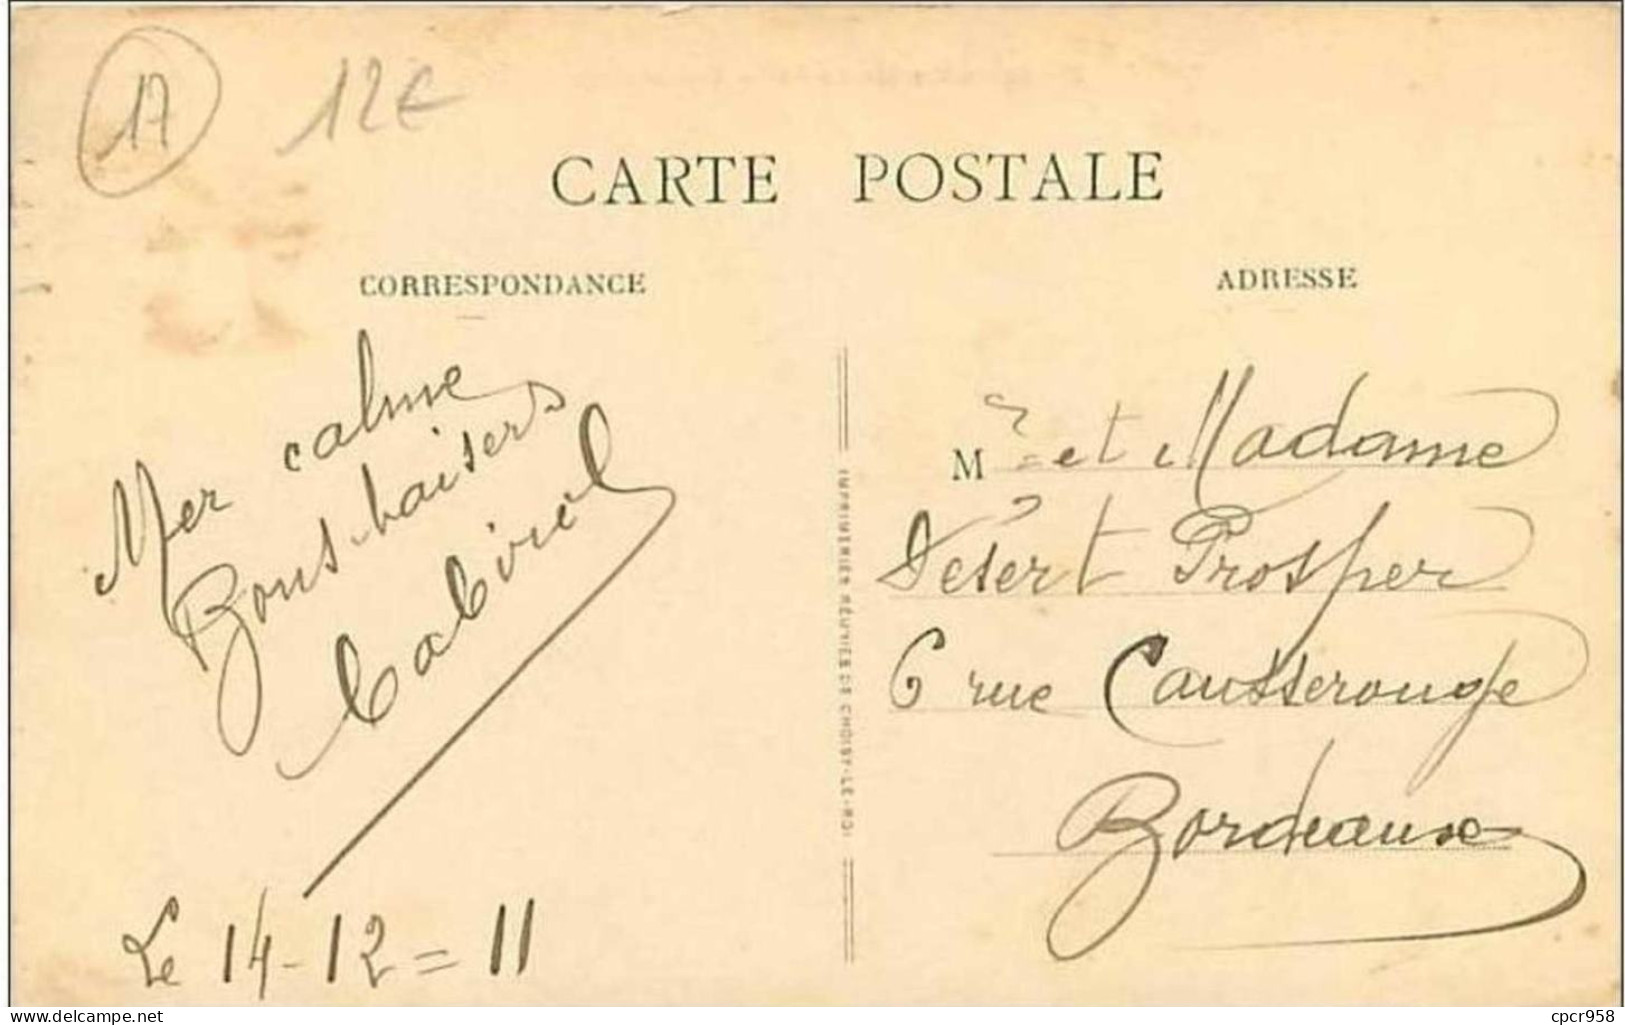 17 12€
CARTE POSTALE
CORRESPONDANCE
Mer calme
Bons baisers
Le 14-12=11
IMPRIMERIES RÉUNIES DE CHOISY-LE-ROI
ADRESSE
Mr et Madame
Désert Prosper
6 rue Causserouge
Bordeaux
www.delcampe.net
cpcr958